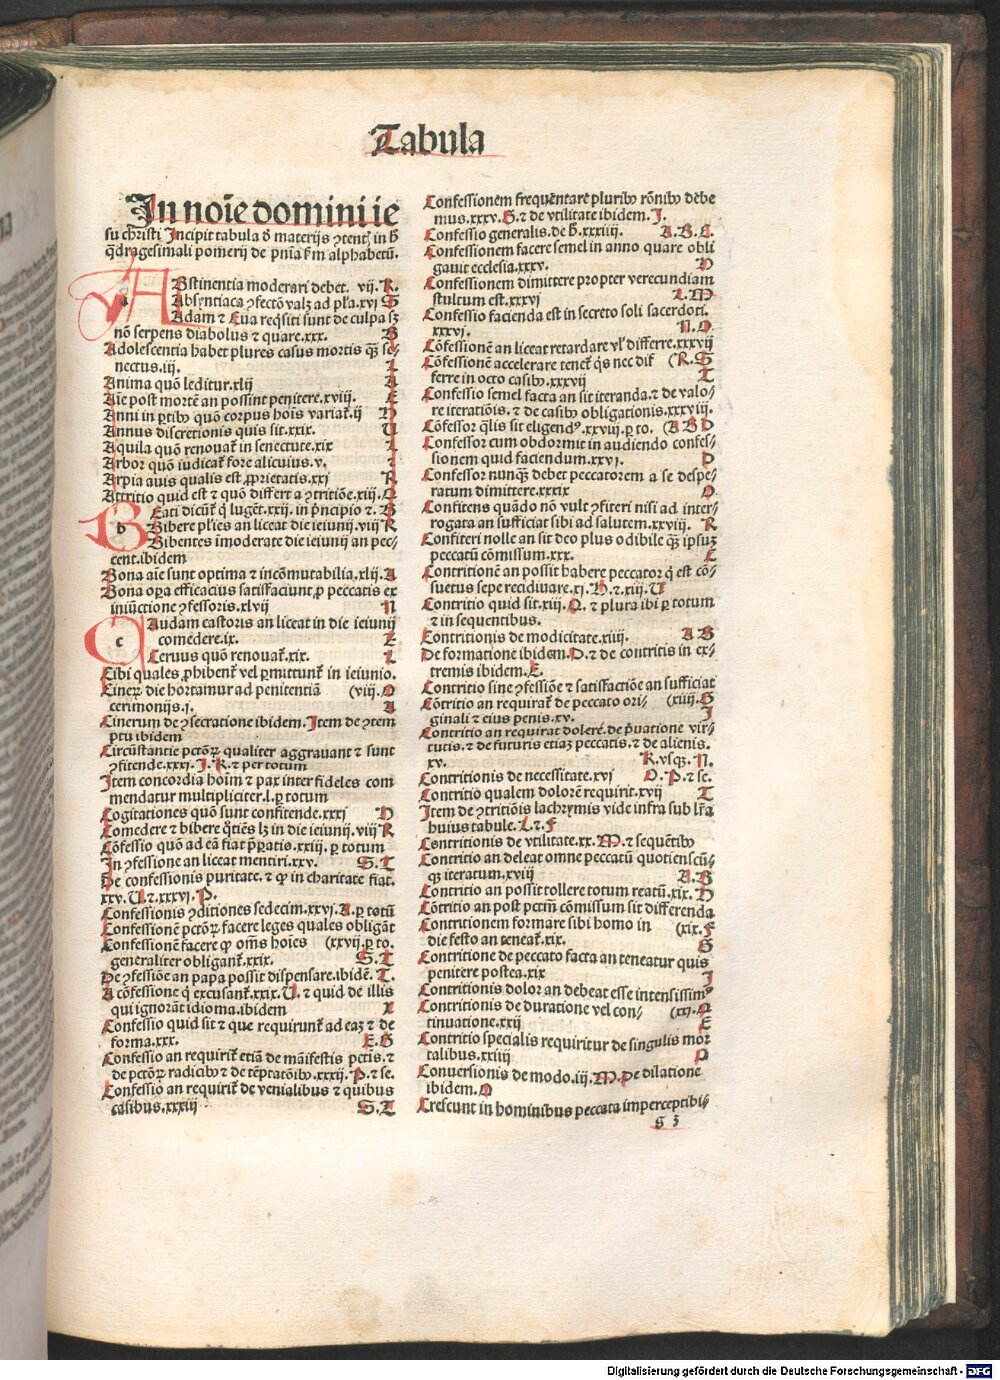 Tabula
In noīe domini ie
su christi Incipit tabula d̄ materijs ꝯtent͛ in h̄
q̄dragesimali pomerij de pn̄ia ẜm alphabetū.
ABstinentia moderari debet. vij. K.
Absyntiaca ꝯfectō valꝫ ad pl̄a.xvj G
Adam ⁊ Eua reqͥsiti sunt de culpa sꝫ
nō serpens diabolus ⁊ quare.xxx. B
Adolescentia habet plures casus mortis qᷓꝫ se⸗
nectus.iij. L
Anima quō leditur.xlij A
Aīe post mortē an possint penitere.xviij. E
Anni in ꝑtibꝰ quō corpus hoīs variat͛.ij H
Annus discretionis quis sit.xxix. U
Aquila quō renouat͛ in senectute.xix L
Arbor quō iudicat͛ fore alicuius.v.
Arpia auis qualis est ꝓprietatis.xxj R
Attritio quid est ⁊ quō differt a ꝯtritiōe.xiij.Q
BEati dicūt͛ qͥ lugēt.xxij. in pͥncipio ⁊. B
b Bibere pl̄ies an liceat die ieiunij.viij R
Bibentes īmoderate die ieiunij an pec⸗
cent.ibidem
Bona aīe sunt optima ⁊ incōmutabilia.xlij.A
Bona oꝑa efficacius satisfaciunt ꝓ peccatis ex
iniūctione ꝯfessoris.xlvij N
CAudam castoris an liceat in die ieiunij
c comedere.ix. E
Ceruus quō renouat͛.xix. L
Cibi quales ꝓhibent͛ vel ꝑmittunt͛ in ieiunio.
Cineꝝ die hortamur ad penitentiā (viij.O
cerimonijs.j. A
Cinerum de ꝯsecratione ibidem. Item de ꝯtem
ptu ibidem
Circūstantie pctōꝝ qualiter aggrauant ⁊ sunt
ꝯfitende.xxxj. I. K. ⁊ per totum
Item concordia hoīm ⁊ pax inter fideles com
mendatur multipliciter.l.ꝑ totum
Cogitationes quō sunt confitende.xxxj D
Comedere ⁊ bibere qͦtiēs lꝫ in die ieiunij.viij R
Cōfessio quō ad eā fiat p̄paratis.xxiij. ꝑ totum
In ꝯfessione an liceat mentiri.xxv. S.T
De confessionis puritate. ⁊ ꝙ in charitate fiat.
xxv. U.⁊.xxxvj. P.
Confessionis ꝯditiones sedecim.xxvj. A. ꝑ totū
Confessionē pctōꝝ facere leges quales obligāt
Confessionē facere ꝙ om̄s hoīes (xxvij.ꝑ to.
generaliter obligant͛.xxix. S.T
De ꝯfessiōe an papa possit dispensare.ibidē. T.
A cōfessione qͥ excusant͛.xxix. U. ⁊ quid de illis
qui ignorāt idioma.ibidem X
Confessio quid sit ⁊ que requirunt͛ ad eaꝫ ⁊ de
forma.xxx. E.G
Confessio an requirit͛ etiā de māifestis pctis.⁊
de pctōꝝ radicibꝰ ⁊ de tēptatōibꝰ.xxxij. P.⁊ se.
Confessio an requirit͛ de venialibus ⁊ quibus
casibus.xxxiij S.T
Confessionem frequētare pluribꝰ rōnibꝰ debe
mus.xxxv. G.⁊ de vtilitate ibidem. I.
Confessio generalis.de h̄.xxxiiij. A.B.C.
Confessionem facere semel in anno quare obli
gauit ecclesia.xxxv. D
Confessionem dimittere propter verecundiam
stultum est.xxxvj L.M
Confessio facienda est in secreto soli sacerdoti.
xxxvj. N.O.
Cōfessionē an liceat retardare vl̓ differre.xxxvij
Cōfessionē accelerare tenet͛ qͥs nec dif (R.S
ferre in octo casibꝰ.xxxvij T
Confessio semel facta an sit iteranda.⁊ de valo⸗
re iteratiōis. ⁊ de casibꝰ obligationis.xxxviij.
Cōfessor qͣlis sit eligendꝰ.xxviij.ꝑ to. (A B D
Confessor cum obdormit in audiendo confes⸗
sionem quid faciendum.xxvj. D
Confessor nunqᷓꝫ debet peccatorem a se despe⸗
ratum dimittere.xxxix O.
Confitens quādo nō vult ꝯfiteri nisi ad inter⸗
rogata an sufficiat sibi ad salutem.xxviij. R
Confiteri nolle an sit deo plus odibile qᷓꝫ ipsuꝫ
peccatū cōmissum.xxx. E
Contritionē an possit habere peccator qͥ est cō⸗
suetus sepe recidiuare.xj. H. ⁊.xiij. U
Contritio quid sit.xiij. Q. ⁊ plura ibi ꝑ totum
⁊ in sequentibus.
Contritionis de modicitate.xiiij. A B
De formatione ibidem.D.⁊ de contritis in ex⸗
tremis ibidem.E.
Contritio sine ꝯfessiōe ⁊ satisfactiōe an sufficiat
Cōtritio an requirat͛ de peccato ori⸗ (xiiij.G
ginali ⁊ eius penis.xv. I
Contritio an requirat dolerē.de p̄uatione vir⸗
tutis.⁊ de futuris etiaꝫ peccatis.⁊ de alienis.
xv. K.vsqꝫ. N.
Contritionis de necessitate.xvj O.P.⁊ se.
Contritio qualem dolorē requirit.xvij T
Item de ꝯtritiōis lachrymis vide infra sub lr̄a
huius tabule. L.⁊. F
Contritionis de vtilitate.xx. M.⁊ sequētibꝰ
Contritio an deleat omne peccatū quotienscū⸗
qꝫ iteratum.xviij A.B
Contritio an possit tollere totum reatū.xix. D
Cōtritio an post pctm̄ cōmissum sit differenda
Contritionem formare sibi homo in (xix.F
die festo an teneat͛.xix. G
Contritione de peccato facta an teneatur quis
penitere postea.xix I
Contritionis dolor an debeat esse intensissimꝰ
Contritionis de duratione vel con⸗ (xxj.Q
tinuatione.xxij E
Contritio specialis requiritur de singulis mor
talibus.xxiiij P
Conuersionis de modo.iij. M. De dilatione
ibidem.O
Crescunt in hominibus peccata imperceptibi⸗
g 3
Digitalisierung gefördert durch die Deutsche Forschungsgemeinschaft - DFG